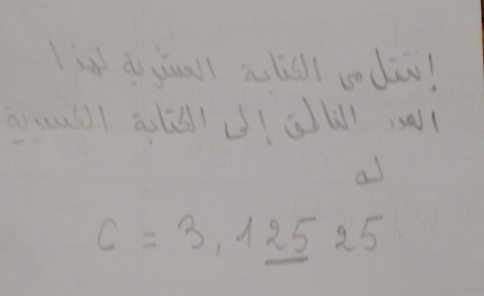 إنتقل من الكتابة العشرية لهذا
العدد الناطق إلى الكتابة الكسرية
له
C = 3,125 25